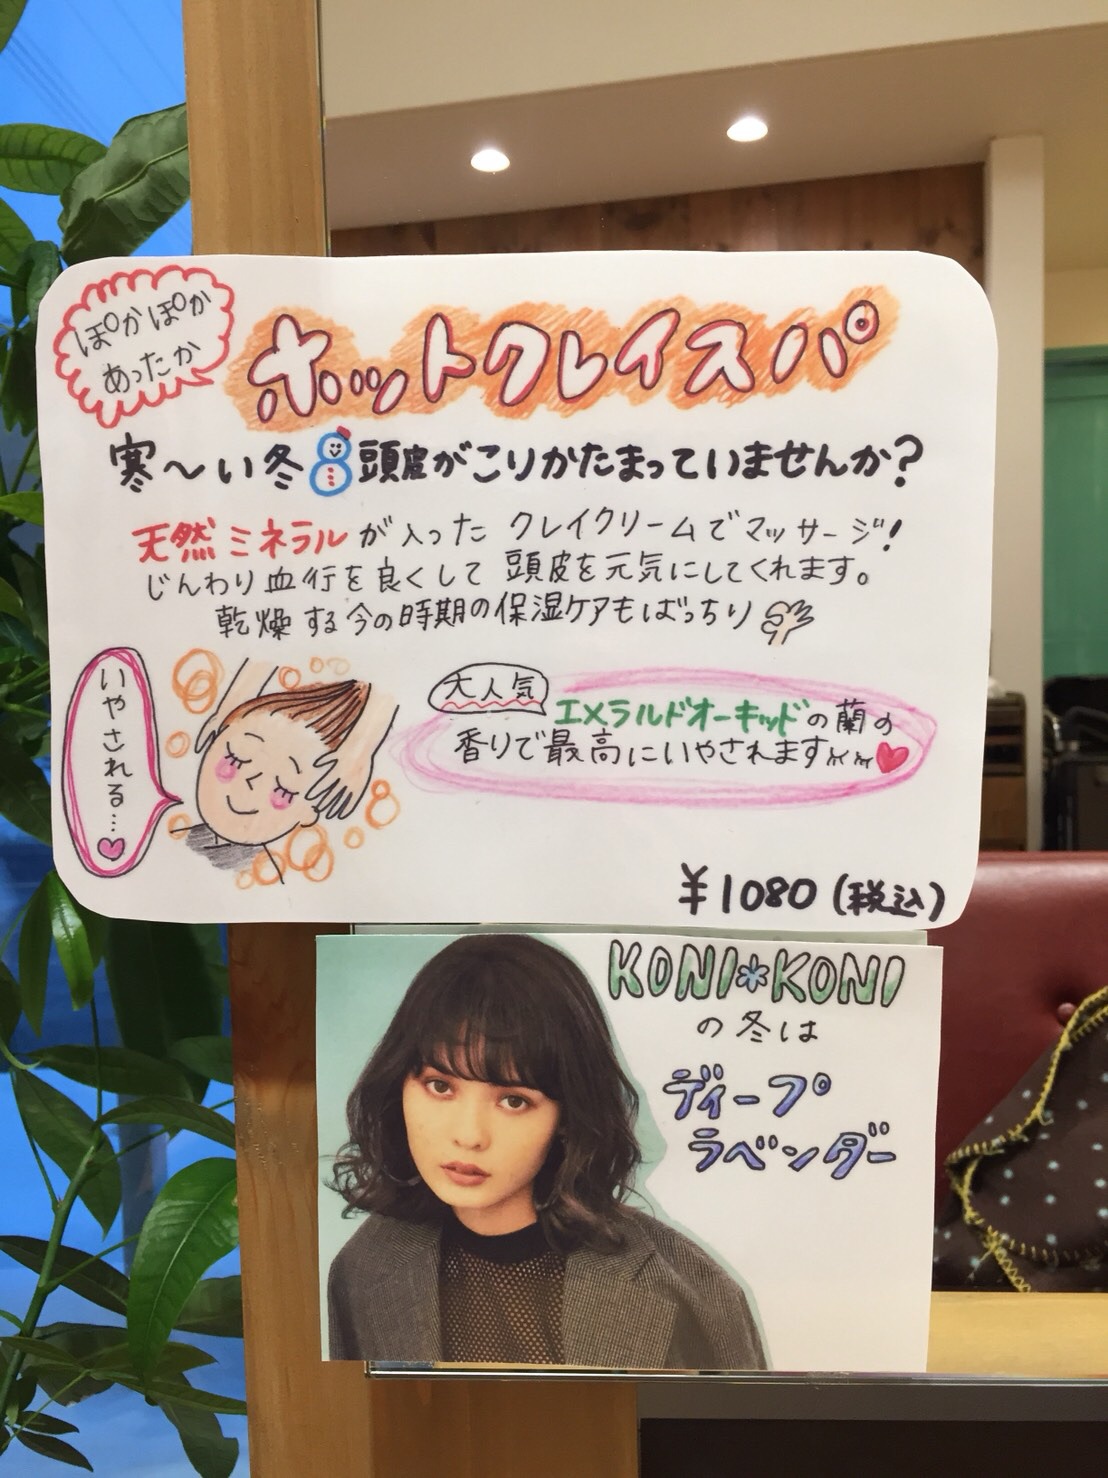 ぽかぽか
あったか
ホットクレイスパ
寒〜い冬 頭皮がこりかたまっていませんか?
天然ミネラルが入った クレイクリームでマッサージ!
じんわり血行を良くして 頭皮を元気にしてくれます。
乾燥する今の時期の保湿ケアもばっちり
いやされる…
大人気
エメラルドオーキッドの蘭の
香りで最高にいやされます
¥1080(税込)
KONI*KONI
の冬は
ディープ
ラベンダー